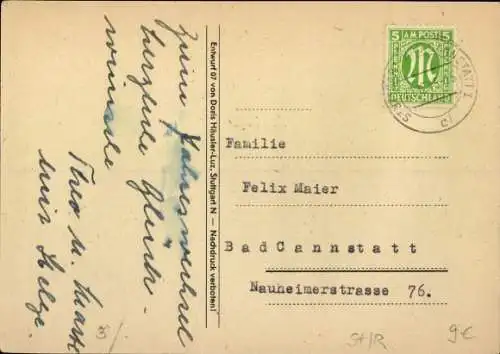 Zum Jahreswechsel
herzliche Glück-
wünsche
Theo u. Martha
Entwurf 07 von Doris Häusler-Luz, Stuttgart N — Nachdruck verboten!
5 AM POST 5
PFENNIG
M
PFENNIG
DEUTSCHLAND
Familie
Felix Maier
Bad Cannstatt
Nauheimerstrasse 76.
St/R
9€